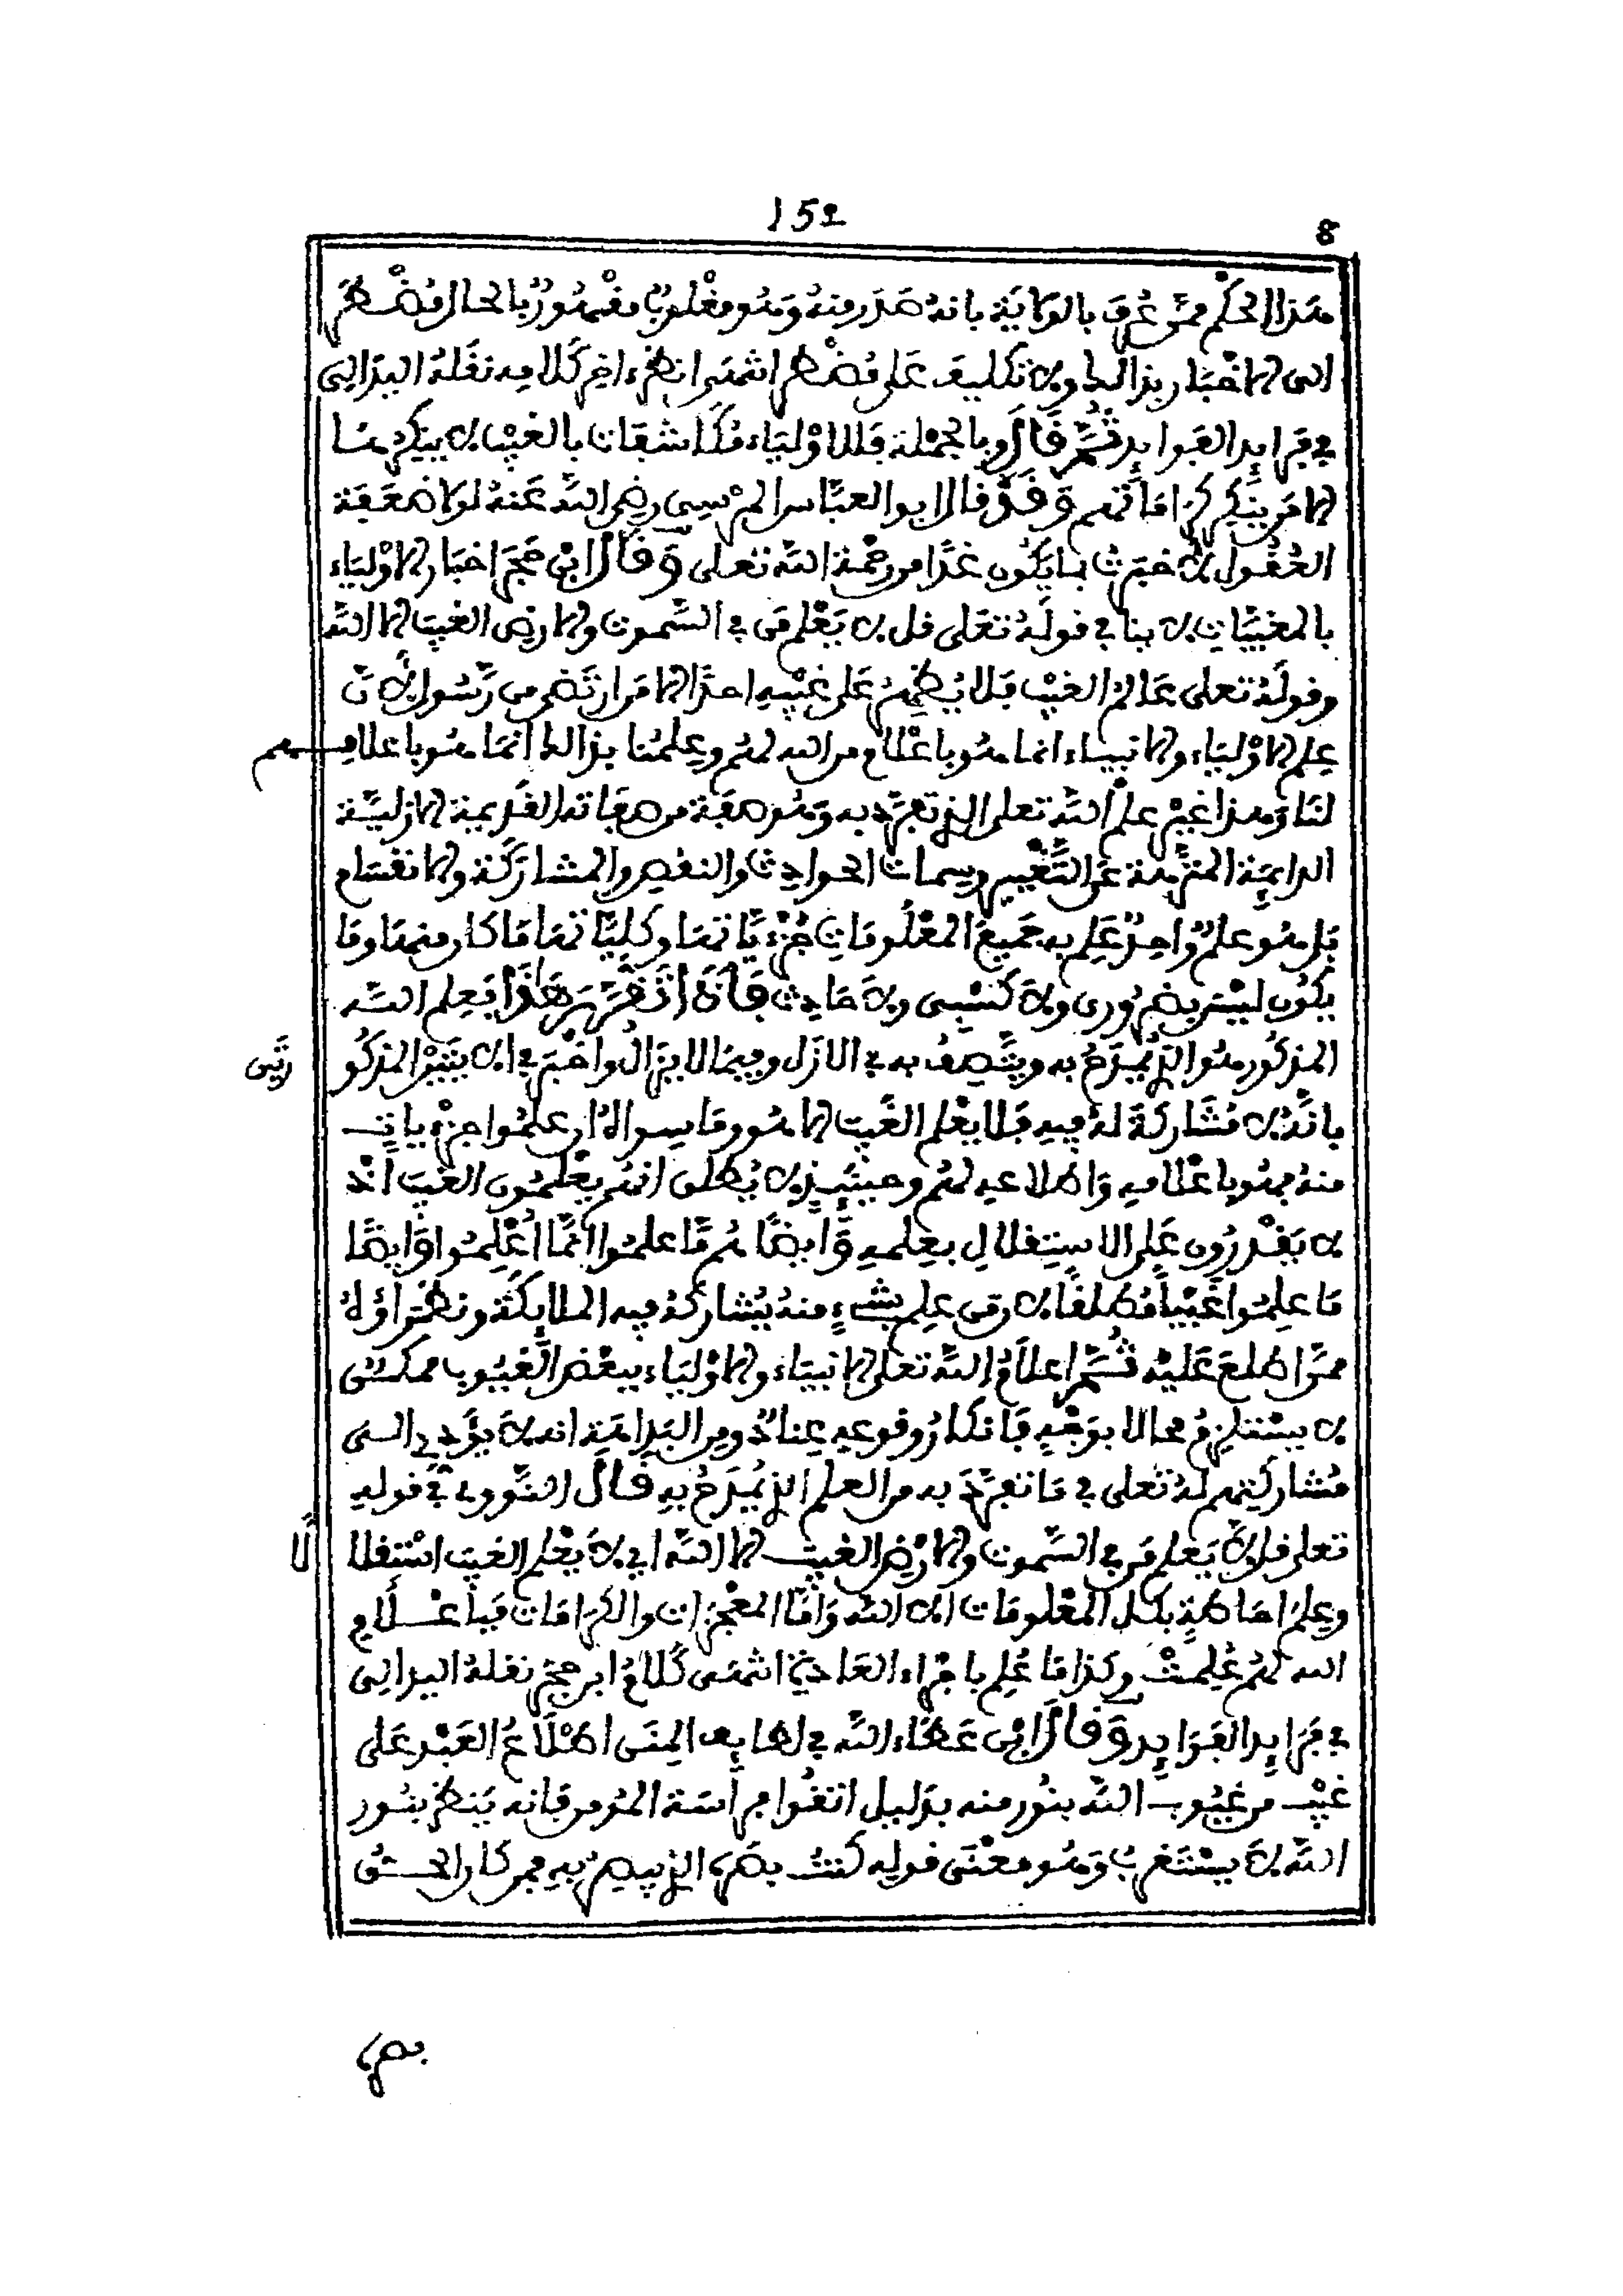 152
8
هذا الحكم ممن عرف بالولاية بانه صدر منه وهو مغلوب مقهور بالحال مضطر
الى الاخبار بذالك ولا تكليف على مضطر انتهى انظر ءاخر كلامه نقله البدالي
في فرايد الفوايد ثم قال وبالجملة فللاولياء مكاشفات بالغيب لا ينكرها
الا من ينكر كراماتهم وقد قال ابو العباس المرسي رضي الله عنه لولا ضعفة
العقول لاخبرت بما يكون غدا من رحمة الله تعلى وقال ابن حجر اخبار الاولياء
بالمغيبات لا ينافي قوله تعلى قل لا يعلم من في السموت والارض الغيب الا الله
وقوله تعلى عالم الغيب فلا يظهر على غيبه احدا الا من ارتضى من رسول لان
علم الاولياء والانبياء انما هو باعلام من الله لهم وعلمنا بذالك انما هو باعلامهم
لنا وهذا غير علم الله تعلى الذي تفرد به وهو صفة من صفاته القديمة الازلية
الدايمة المنزهة عن التغيير وسمات الحوادث والنقص والمشاركة والانقسام
بل هو علم واحد علم به جميع المعلومات جزءياتها وكلياتها ما كان منها وما
يكون ليس بضروري ولا كسبي ولا حادث فاذا تقرر هذا فعلم الله
المذكور هو الذي يمدح به ويتصف به في الازل وفيما لا يزال واخبر في الايتين المذكو رتين
بانه لا مشاركة له فيه فلا يعلم الغيب الا هو وما سواه ان علموا جزءيات
منه فهو باعلامه واطلاعه لهم وحينئذ لا يطلق انهم يعلمون الغيب اذ
لا يقدرون على الاستقلال بعلمه وايضا هم ما علموا انما اعلموا وايضا
ما علموا غيبا مطلقا لان من علم بشيء منه يشاركه فيه الملايكة ونظراؤه
ممن اطلع عليه ثم اعلام الله تعلى الانبياء والاولياء ببعض الغيوب ممكن
لا يستلزم محالا بوجه فانكار وقوعه عناد ومن البداهة انه لا يؤدي الى
مشاركتهم له تعلى في ما تفرد به من العلم الذي يمدح به قال النووي في قوله
تعلى قل لا يعلم من في السموت والارض الغيب الا الله اي لا يعلم الغيب استقلا لا
وعلم احاطة بكل المعلومات الا الله واما المعجزات والكرامات فباعلام
الله لهم علمت وكذا ما علم باجراء العادة انتهى كلام ابن حجر نقله البدالي
في فرايد الفوايد وقال ابن عطاء الله في لطايف المنن اطلاع العبد على
غيب من غيوب الله بنور منه بدليل اتقوا فراسة المؤمن فانه ينظر بنور
الله لا يستغرب وهو معنى قوله كنت بصره الذي يبصر به فمن كان الحق
بصره